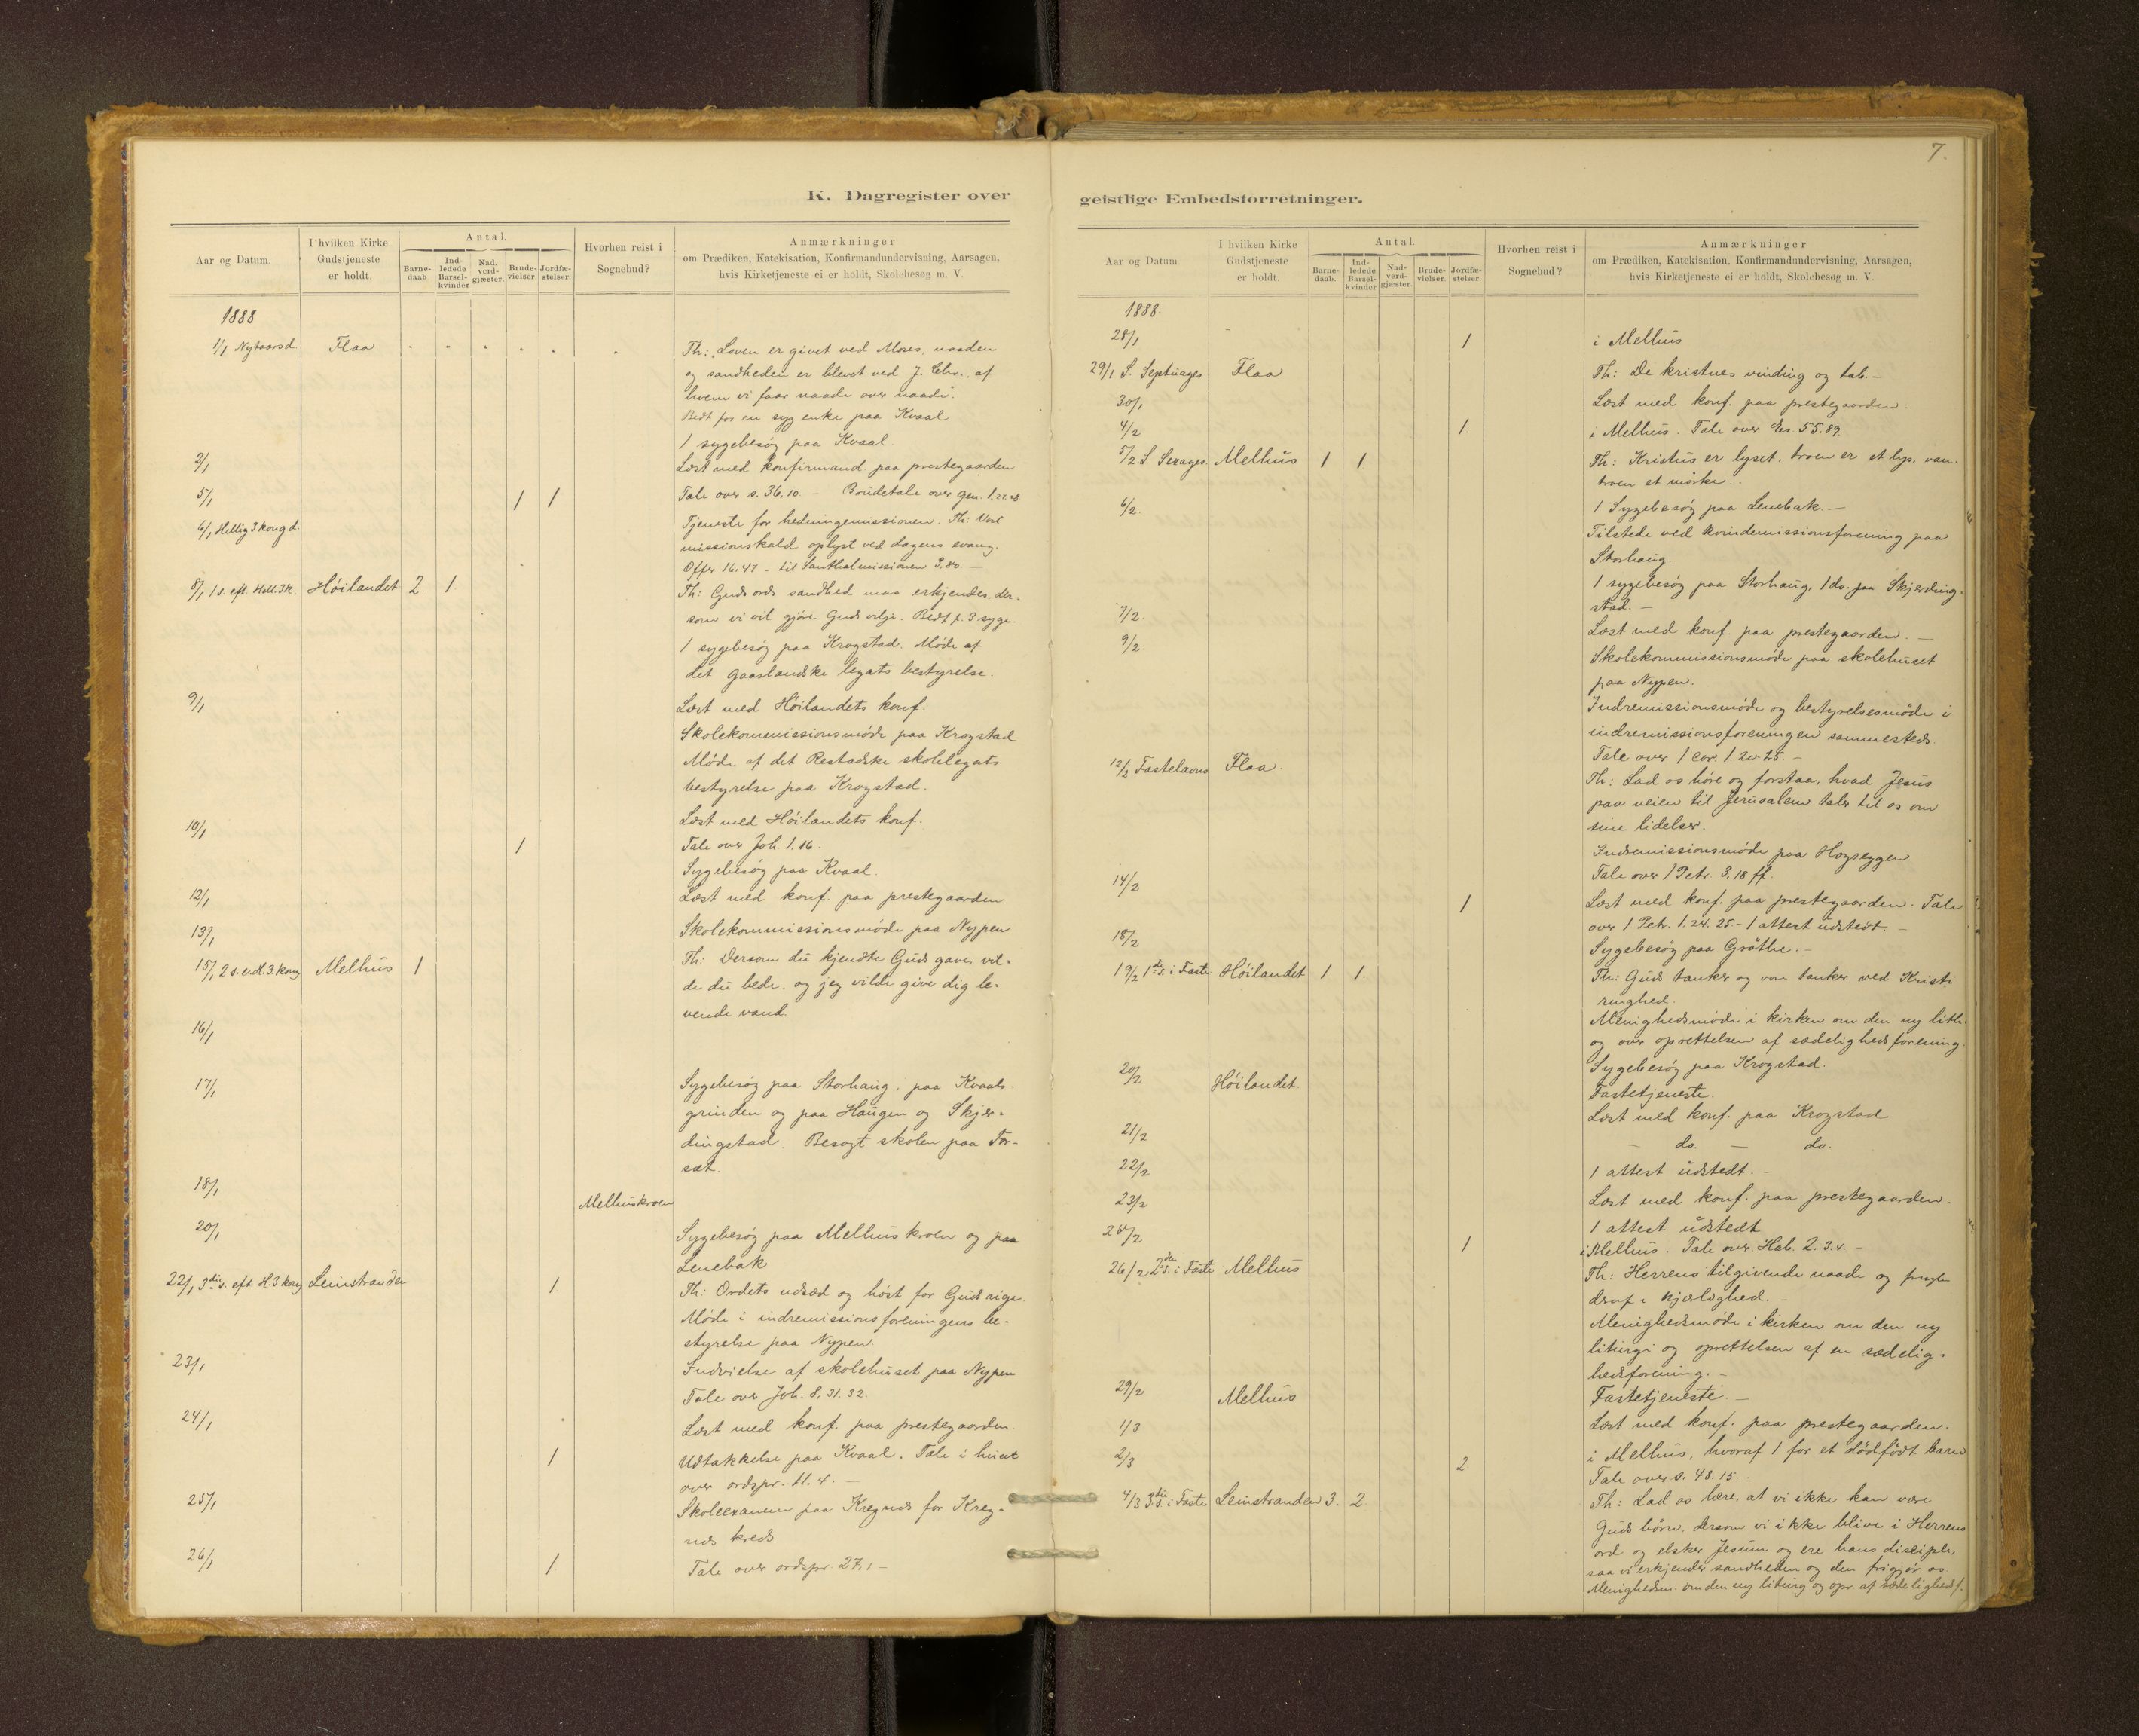 K. Dagregister over
Aar og Datum.
I hvilken Kirke
Gudstjeneste
er holdt.
Antal.
Barne-
daab
Ind-
ledede
Barsel-
kvinder
Nad.
verd-
gjæster.
Brude-
vielser
Jordfæ-
stelser.
Hvorhen reist i
Sognebud?
Anmærkninger
om Prædiken, Katekisation, Konfirmandundervisning, Aarsagen,
hvis Kirketjeneste ei er holdt, Skolebesøg m. V.
1888
1/1 Nytaarsd. Flaa Th: "Loven er givet ved Moses, naaden
og sandheden er blevet ved J. Chr., af
hvem vi faar naade over naade".
Bedt for en syg enke paa Kvaal
1 sygebesøg paa Kvaal.
2/1 Læst med konfirmand paa prestegaarden
5/1 1 1 Tale over s. 36,10. - Brudetale over gen. 1.
6/1 Hellig 3 kong d. Tjeneste for hedningemissionen. Th: Vort
missionskald oplyst ved dagens evang.
Offer 16.47. til Santhalmissionen 3.80. -
8/1 1 s. eft. Hell. 3 k. Høilandet 2 1 Th: Guds ords sandhed maa erkjendes, der-
som vi vil gjøre Guds vilje. Bedt f. 3 syge
1 sygebesøg paa Krogstad. Møde af
det Gaaslandske legats bestyrelse.
9/1 Læst med Høilandets konf.
Skolekommissionsmøde paa Krogstad
Møde af det Restadske skolelegats
bestyrelse paa Krogstad.
10/1 Læst med Høilandets konf.
1 Tale over Joh. 1.16.
Sygebesøg paa Kvaal.
12/1 Læst med konf. paa prestegaarden
13/1 Skolekommissionsmøde paa Nypen
15/1 2 s. e. H. 3. kong Melhus 1 Th: Dersom du kjendte Guds gave, vil-
de du bede, og jeg vilde give dig le-
vende vand.
16/1
17/1 Sygebesøg paa Storhaug, paa Kvaals-
grinden og paa Haugen og Skjer-
dingstad. Besøgt skolen paa For-
sæt.
18/1 Melhuskroen
20/1 Sygebesøg paa Melhuskroen og paa
Lenebak
22/1 3die s. eft. H. 3 kong Leinstranden 1 Th: Ordets udsæd og høst for Guds rige.
Møde i indremissionsforeningens be-
styrelse paa Nypen.
23/1 Indvielse af skolehuset paa Nypen
Tale over Joh. 8,31.32.
24/1 Læst med konf. paa prestegaarden.
1 Udtakkelse paa Kvaal. Tale i huset
over ordspr. 11.4. -
25/1 Skoleexamen paa Kregnes for Kreg-
nes kreds
26/1 1 Tale over ordspr. 27.1 -
7.
geistlige Embedsforretninger.
Aar og Datum
I hvilken Kirke
Gudstjeneste
er holdt.
Antal.
Barne-
daab.
Ind-
ledede
Barsel-
kvinder
Nad-
verd-
gjæster.
Brude-
vielser.
Jordfæ-
stelser.
Hvorhen reist i
Sognebud?
Anmærkninger
om Prædiken, Katekisation, Konfirmandundervisning, Aarsagen,
hvis Kirketjeneste ei er holdt, Skolebesøg m. V.
1888.
28/1 1 i Melhus
29/1 S. Septuages Flaa Th: De kristnes vinding og tab. -
30/1 Læst med konf. paa prestegaarden.
4/2 1 i Melhus. Tale over Es. 55.89.
5/2 S. Sexages. Melhus 1 1 Th: Kristus er lyset, troen er et lys, van-
troen et mørke.
6/2. 1 Sygebesøg paa Lenebak. -
Tilstede ved kvindemissionsforening paa
Storhaug.
1 sygebesøg paa Storhaug, 1 do. paa Skjerding-
stad. -
7/2. Læst med konf. paa prestegaarden. -
9/2. Skolekommissionsmøde paa skolehuset
paa Nypen.
Indremissionsmøde og bestyrelsesmøde i
indremissionsforeningen sammesteds.
Tale over 1 Cor. 1. 20-25. -
12/2 Fastelavns Flaa. Th: Lad os høre og forstaa, hvad Jesus
paa veien til Jerusalem taler til os om
sine lidelser.
Indremissionsmøde paa Hogseggen
Tale over 1 Petr. 3.18 ff.
14/2 1 Læst med konf. paa prestegaarden. Tale
over 1 Petr. 1.24.25. - 1 attest udstedt. -
18/2 Sygebesøg paa Gråthe. -
19/2 1ste s. i Faste Høilandet 1 1. Th: Guds tanker og vore tanker ved Kristi
ringhed.
Menighedsmøde i kirken om den ny lith.
og over oprettelsen af sædelighedsforening.
Sygebesøg paa Krogstad.
20/2 Høilandet. Fastetjeneste.
Læst med konf. paa Krogstad
21/2 - do. - do.
22/2 1 attest udstedt. -
23/2 Læst med konf. paa prestegaarden.
1 attest udstedt
24/2 1 i Melhus. Tale over Hab. 2. 3.4. -
26/2 2den s. i Faste Melhus Th: Herrens tilgivende naade og frugten
deraf: kjærlighed. -
Menighedsmøde i kirken om den ny
liturgi og oprettelsen af en sædelig-
hedsforening. -
29/2 Melhus Fastetjeneste. -
1/3 Læst med konf. paa prestegaarden.
2/3 2 i Melhus, hvoraf 1 for et dødfødt barn
Tale over s. 48.15.
4/3 3die s. i Faste Leinstranden 3. 2 Th: Lad os lære, at vi ikke kan være
Guds børn, dersom vi ikke blive i Herrens
ord og elsker Jesum og ere hans disciple,
saa vi erkjender sandheden og den frigjør os
Menighedsm. om den ny liturg og opr. af sædelighedsf.